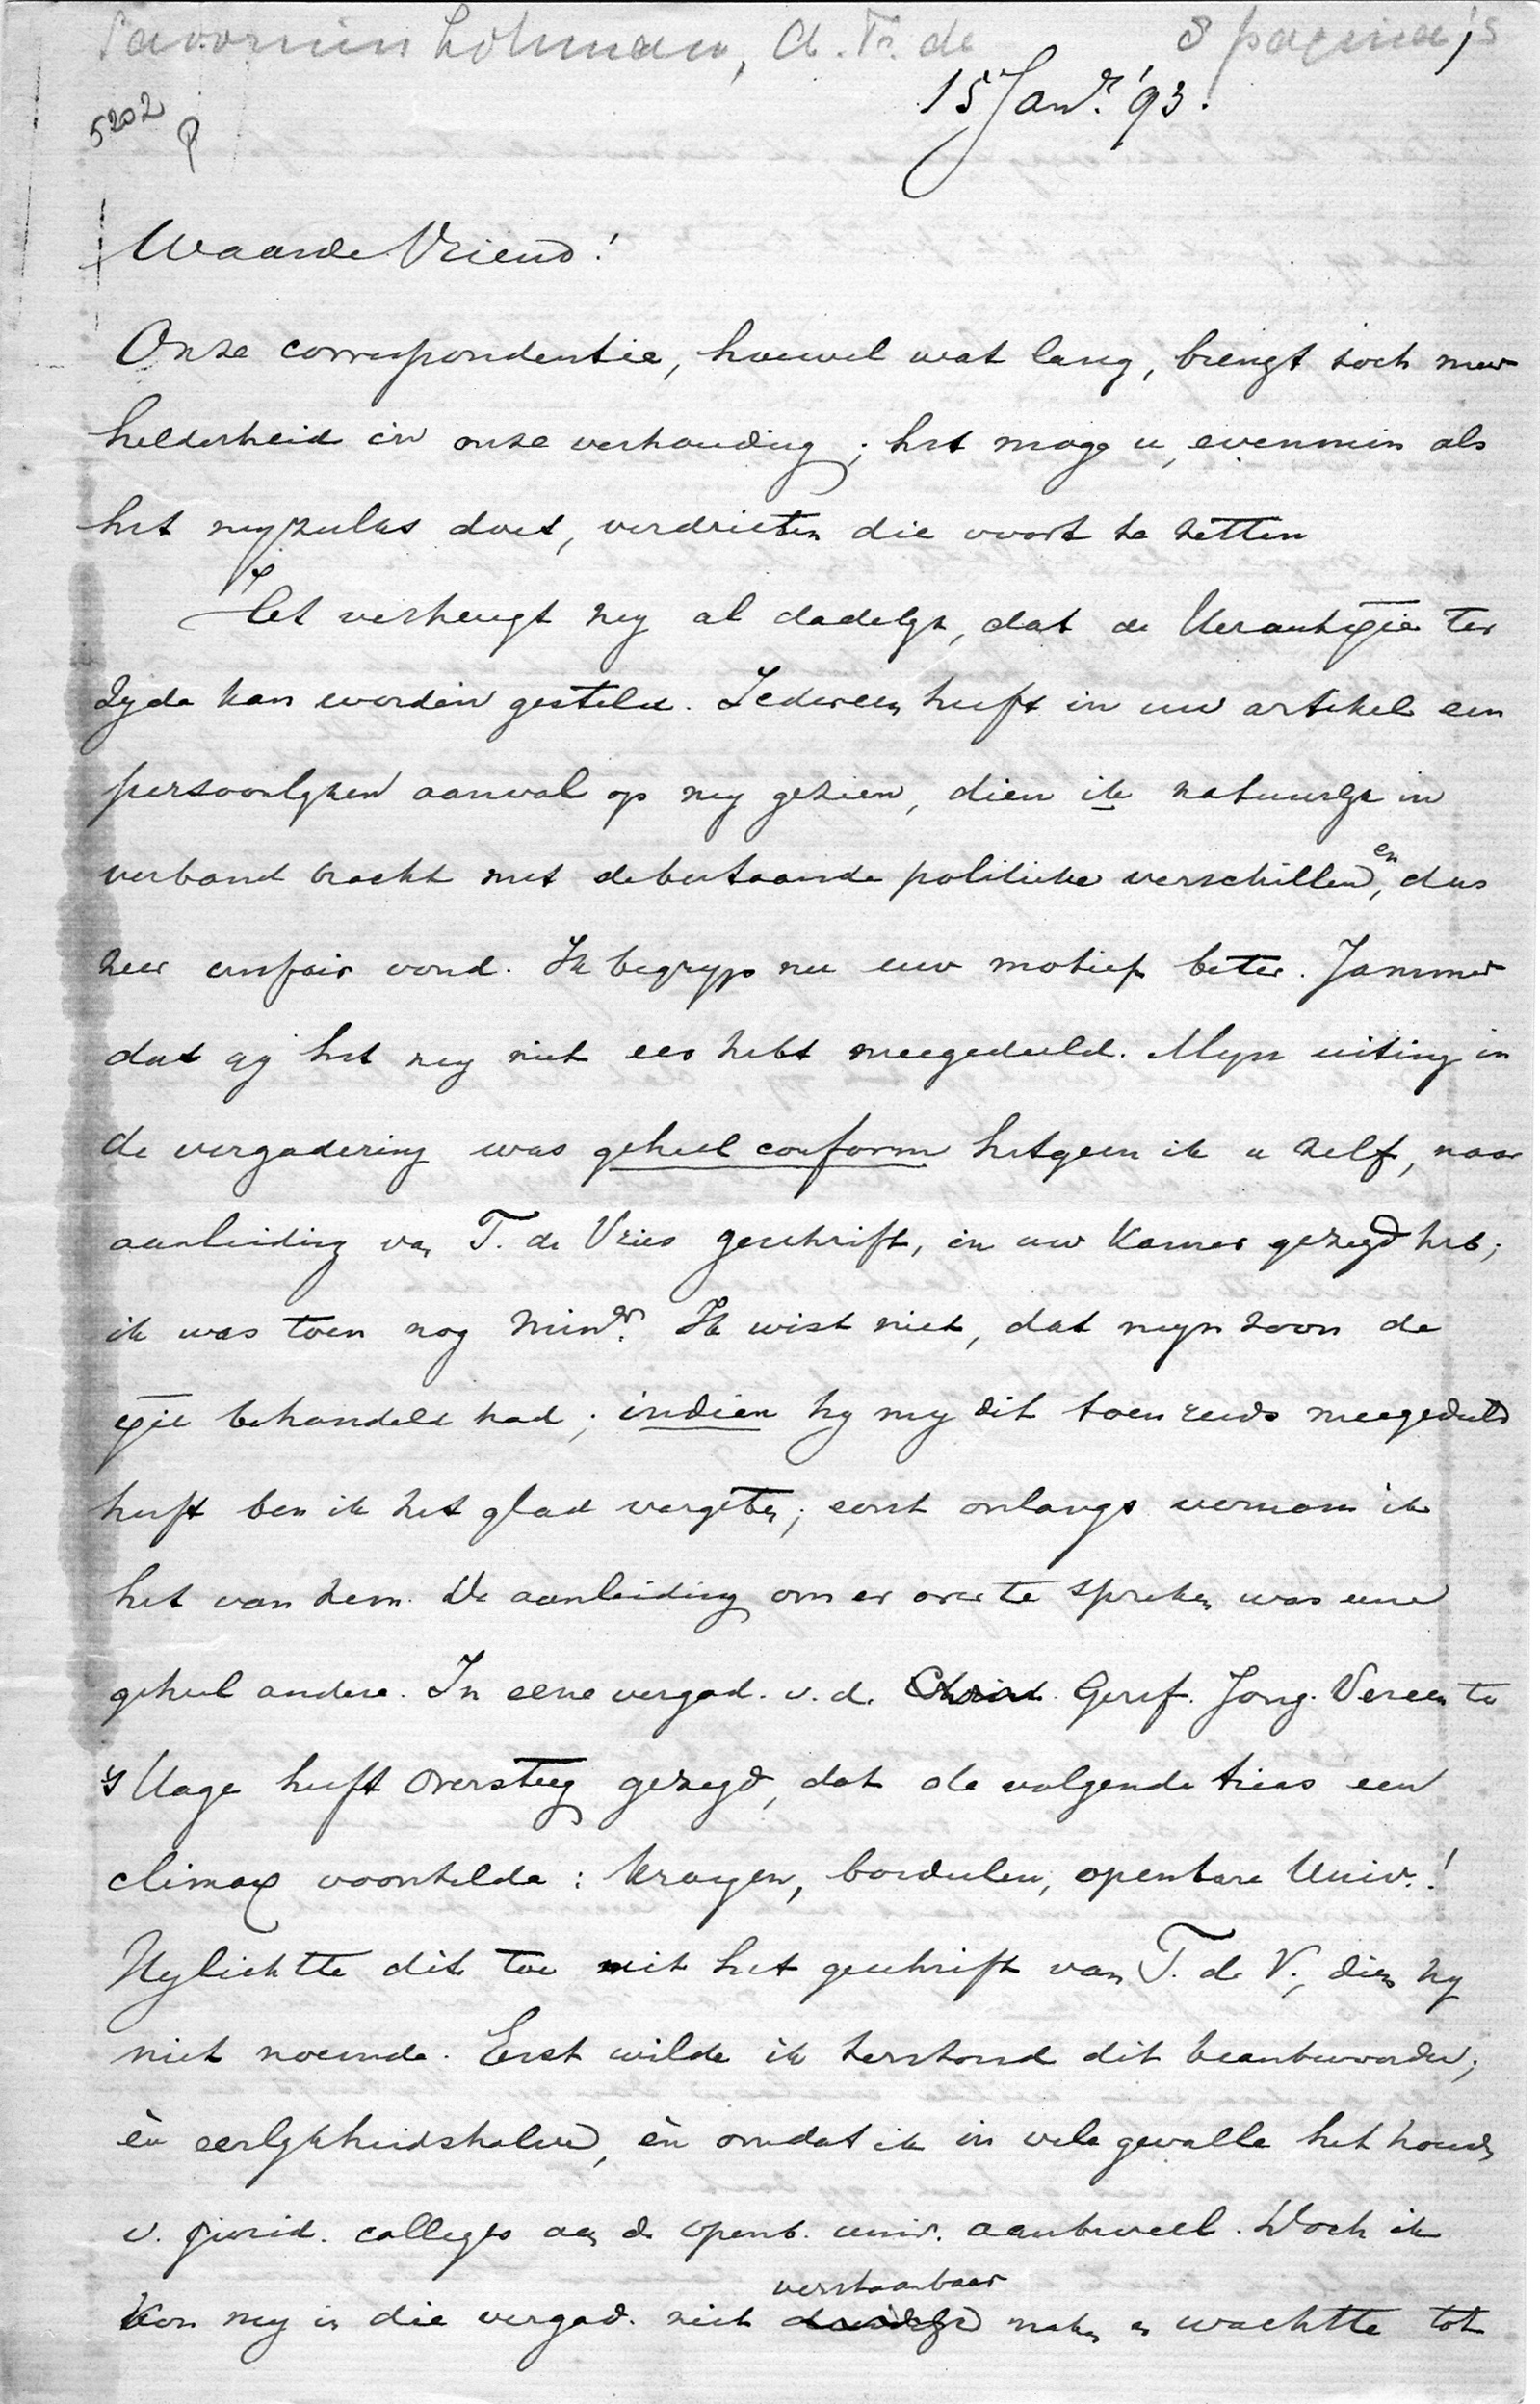 Savornin Lohman, A. F. de 8 pagina's
15 Jan.r '93.
5202
Waarde Vriend!
Onze correspondentie, hoewel wat lang, brengt toch meer
helderheid in onze verhouding; het moge u, evenmin als
het my zulks doet, verdrieten die voort te zetten
Het verheugt my al dadelyk, dat de ter
zyde kan worden gesteld. Iedereen heeft in uw artikel een
persoonlyken aanval op my gezien, dien ik natuurlyk in
verband bracht met de bestaande politieke verschillen, en dus
zeer unfair vond. Ik begryp nu uw motief beter. Jammer
dat gy het my niet eer hebt meegedeeld. Myn uiting in
de vergadering was geheel conform hetgeen ik u zelf, naar
aanleiding van T. de Vries geschrift, in uw kamer gezegd heb;
ik was toen nog Min.r Ik wist niet, dat myn zoon de
behandeld had; indien hy my dit toen reeds meegedeeld
heeft ben ik het glad vergeten; eerst onlangs vernam ik
het van hem. De aanleiding om er over te spreken was eene
geheel andere. In eene vergad. v. d. Christ. Geref. Jong. Vereen te
's Hage heeft Oversteeg gezegd, dat de volgende trias een
climax voorstelde: kroegen, bordeelen, openbare Univ.!
Hy lichtte dit toe uit het geschrift van T. de V., dien hy
niet noemde. Eerst wilde ik terstond dit beantwoorden;
èn eerlykheidshalve, èn omdat ik in vele gevallen het houden
v. jurid. colleges aan de openb. univ. aanbeveel. Doch ik
kon my in die vergad. niet duidelyk verstaanbaar maken en wachtte tot